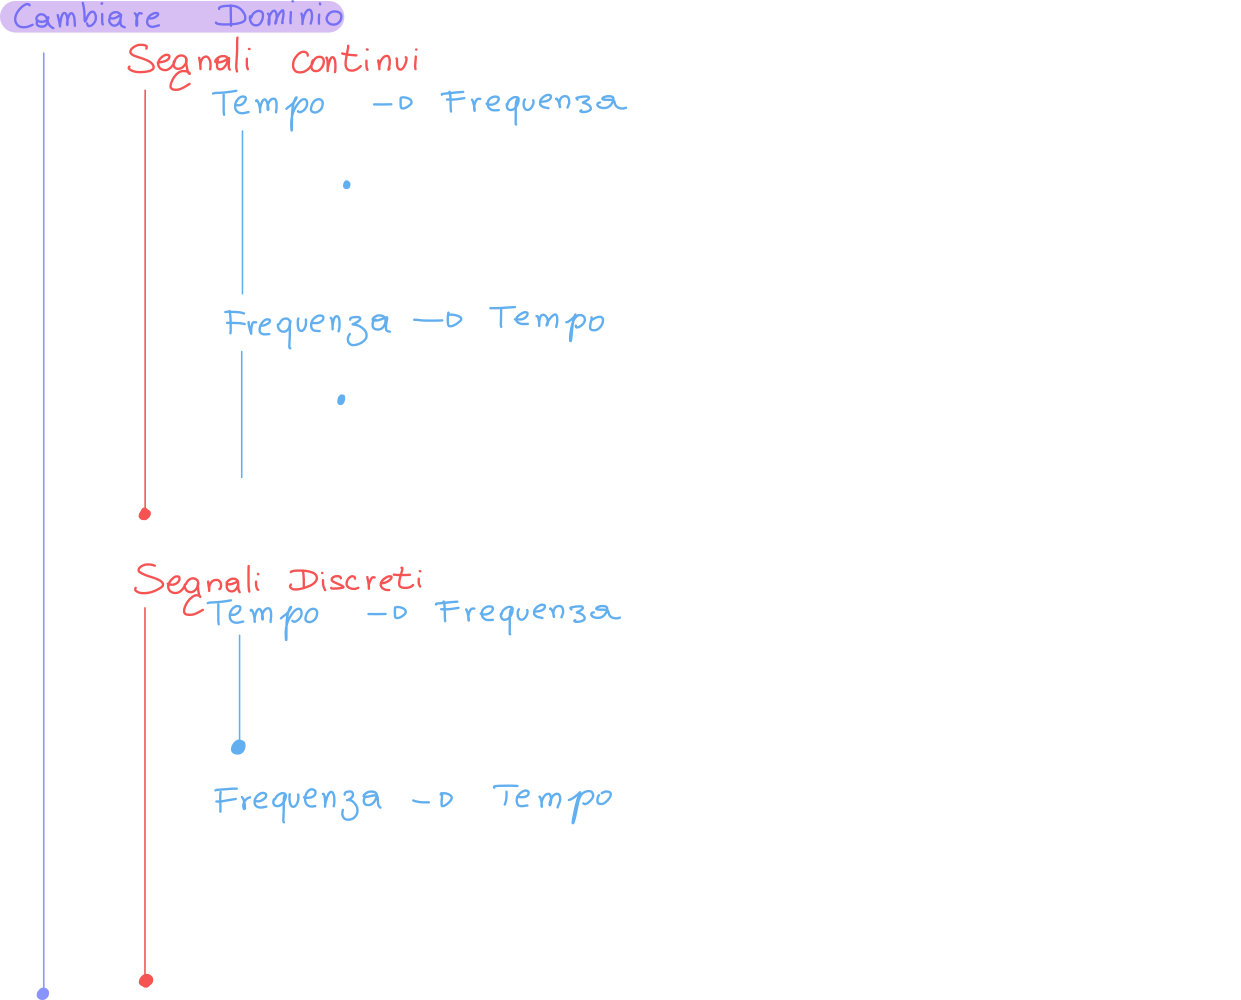 Cambiare Dominio
Segnali Continui
Tempo → Frequenza
Frequenza → Tempo
Segnali Discreti
Tempo → Frequenza
Frequenza → Tempo